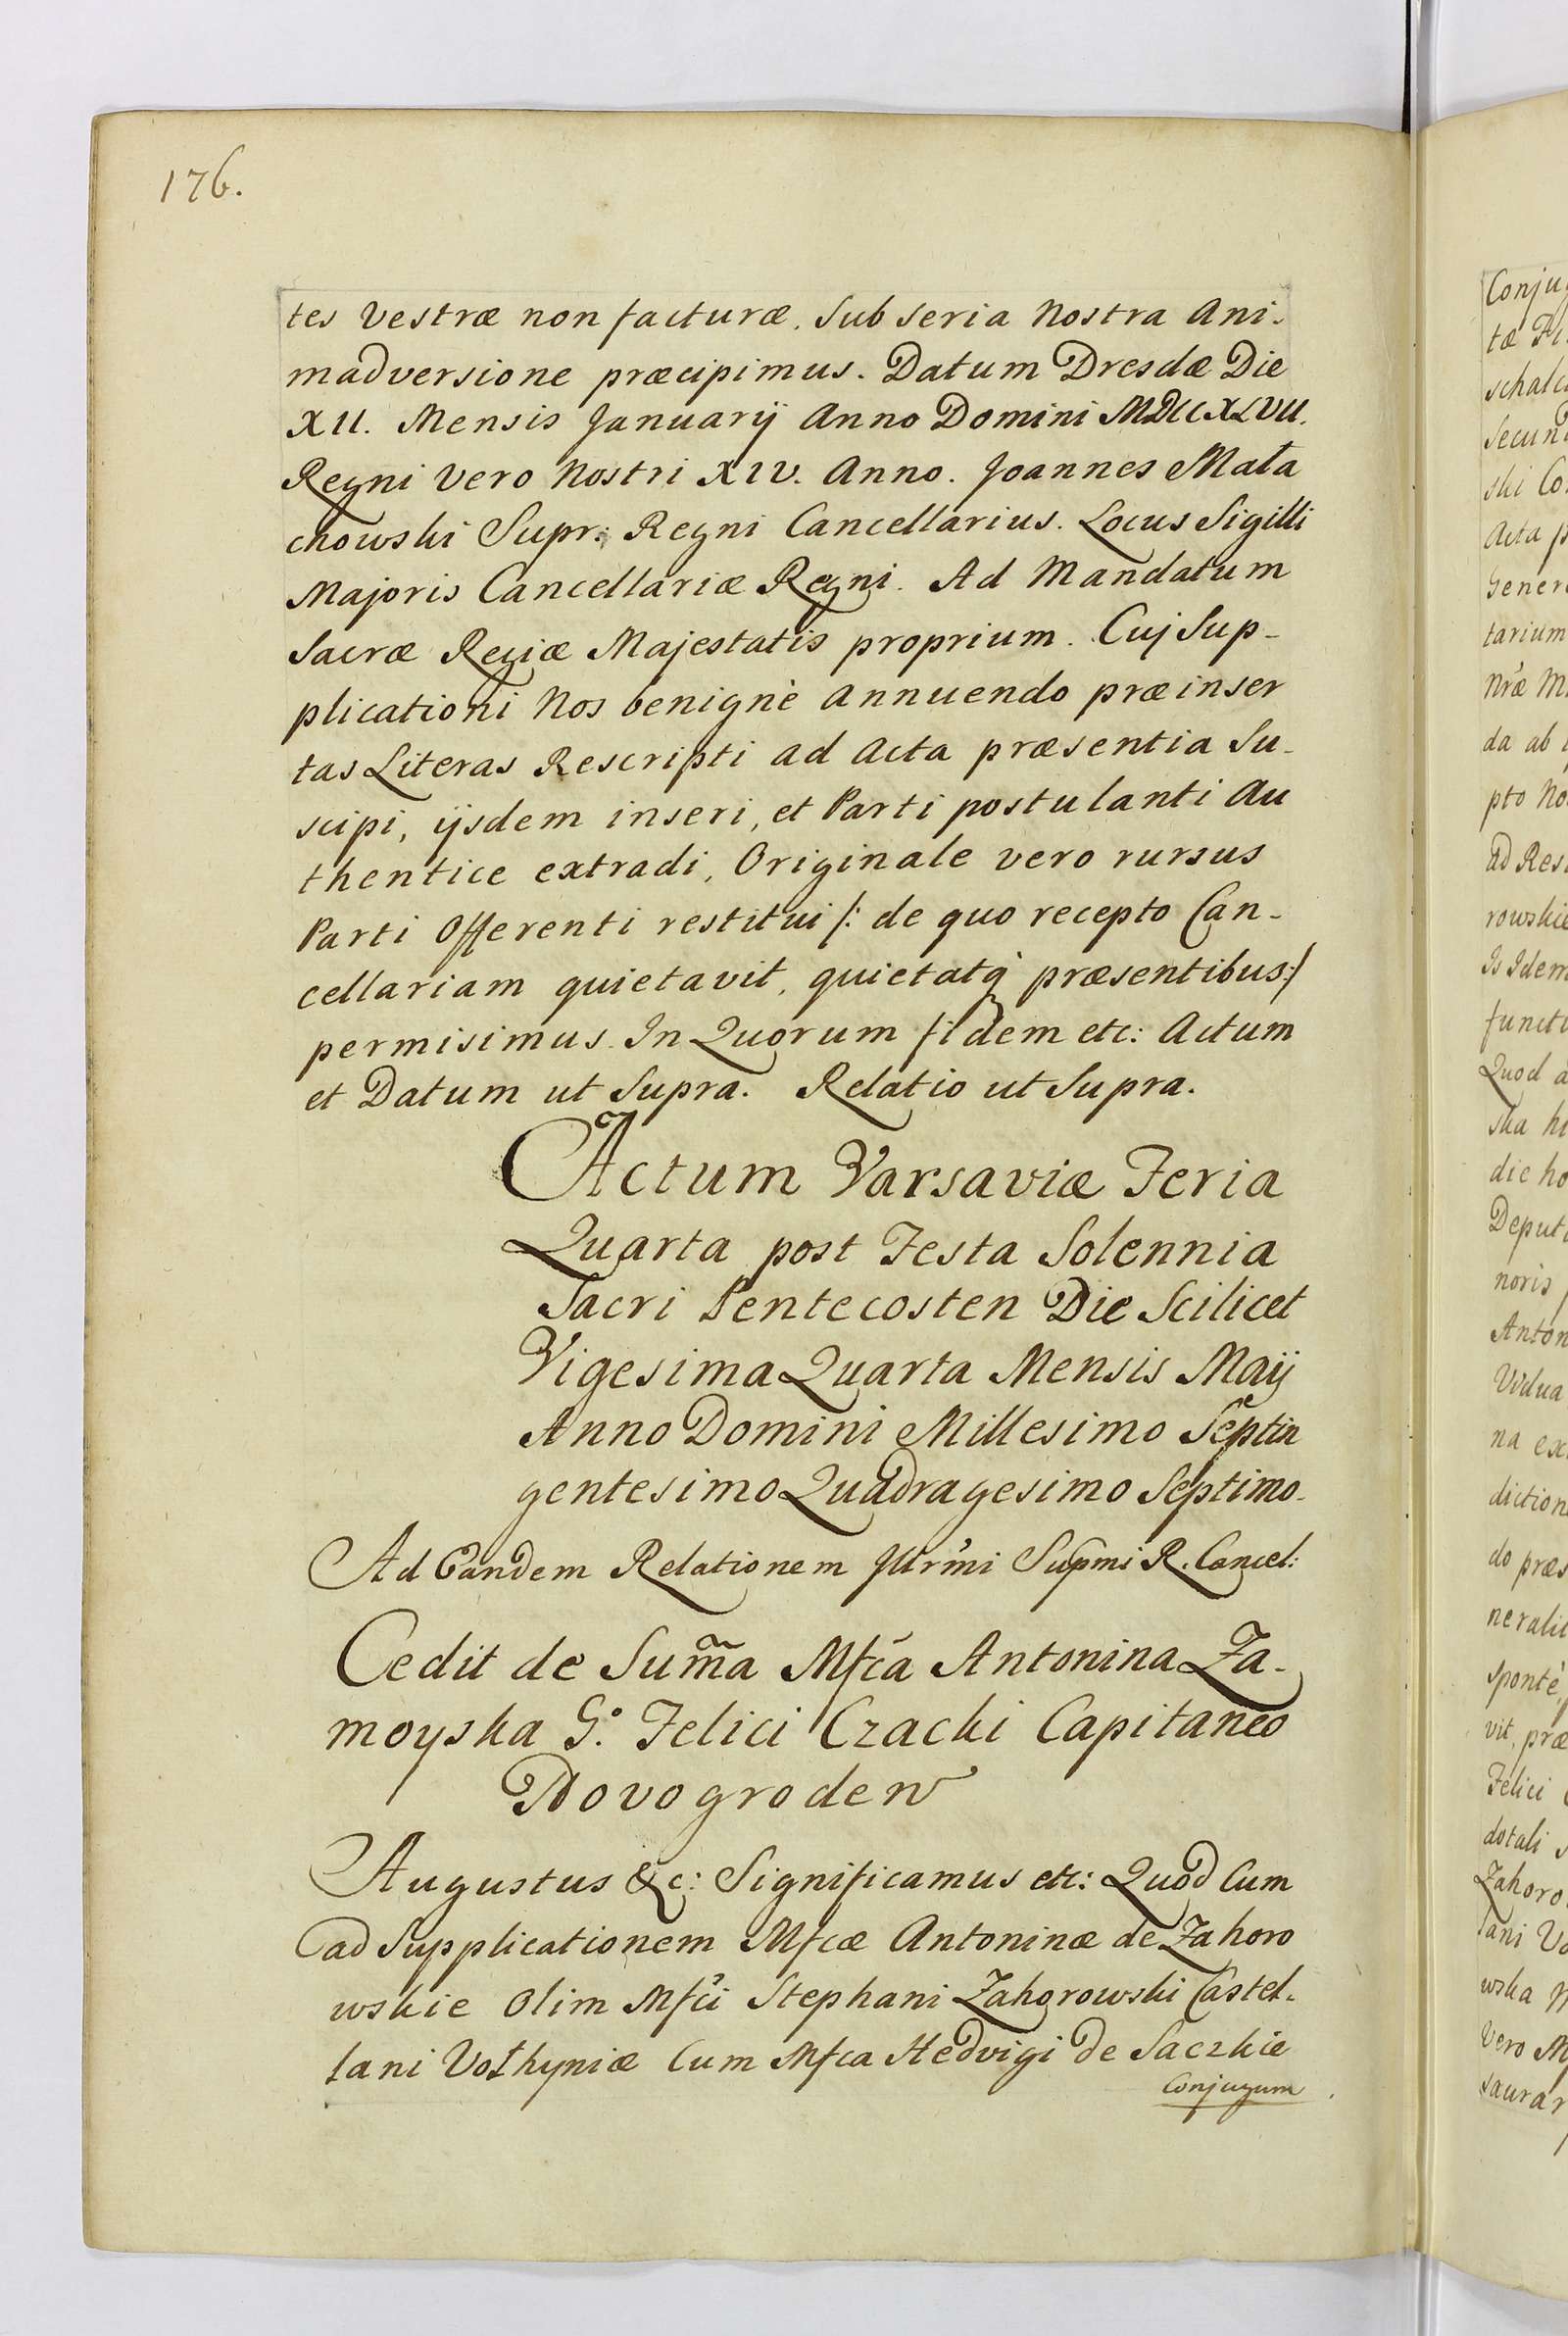 176.
tes Vestræ non facturæ, Sub seria Nostra Ani-
madversione præcipimus. Datum Dresdæ Die
XII. Mensis Januarij Anno Domini MDCCXLVII.
Regni Vero Nostri XIV. Anno. Joannes Mała
chowski Supr: Regni Cancellarius. Locus Sigilli
Majoris Cancellariæ Regni. Ad Mandatum
Sacræ Regiæ Majestatis proprium. Cuj Sup-
plicationi Nos benignè annuendo præinser
tas Literas Rescripti ad Acta præsentia Su-
scipi, ijsdem inseri, et Parti postulanti Au
thentice extradi, Originale vero rursus
Parti Offerenti restitui /: de quo recepto Can-
cellariam quietavit, quietatq̀ præsentibus:/
permisimus. In Quorum fidem etc: Actum
et Datum ut Supra. Relatio ut Supra.
Actum Varsaviæ Feria
Quarta post Festa Solennia
Sacri Pentecosten Die Scilicet
Vigesima Quarta Mensis Maij
Anno Domini Millesimo Septin
gentesimo Quadragesimo Septimo.
Ad Eandem Relationem Jllr̃mi Sup̃mi R. Cancel:
Cedit de Sum̃a Mfca Antonina Za-
moyska G.º Felici Czacki Capitaneo
Novogroden
Augustus &c: Significamus etc: Quod Cum
ad Supplicationem Mfcæ Antoninæ de Zahoro
wskie Olim Mfci Stephani Zahorowski Castel-
lani Vołhyniæ Cum Mfca Hedvigi de Saczkie
Conjugum
Conju
tæ Fi
schalc
Secund
ski Co
Acta p
Gener
tarium
Nr̃æ M
da ab
pto No
ad Res
rowskie
Is Idem
functi
Quod a
ska h
die ho
Deput
noris
Anton
Vidua
na ex
diction
do præs
neralit
Spontè
vit, præ
Felici
dotali
Zahoro
lani Vo
wska
Vero M
saurar